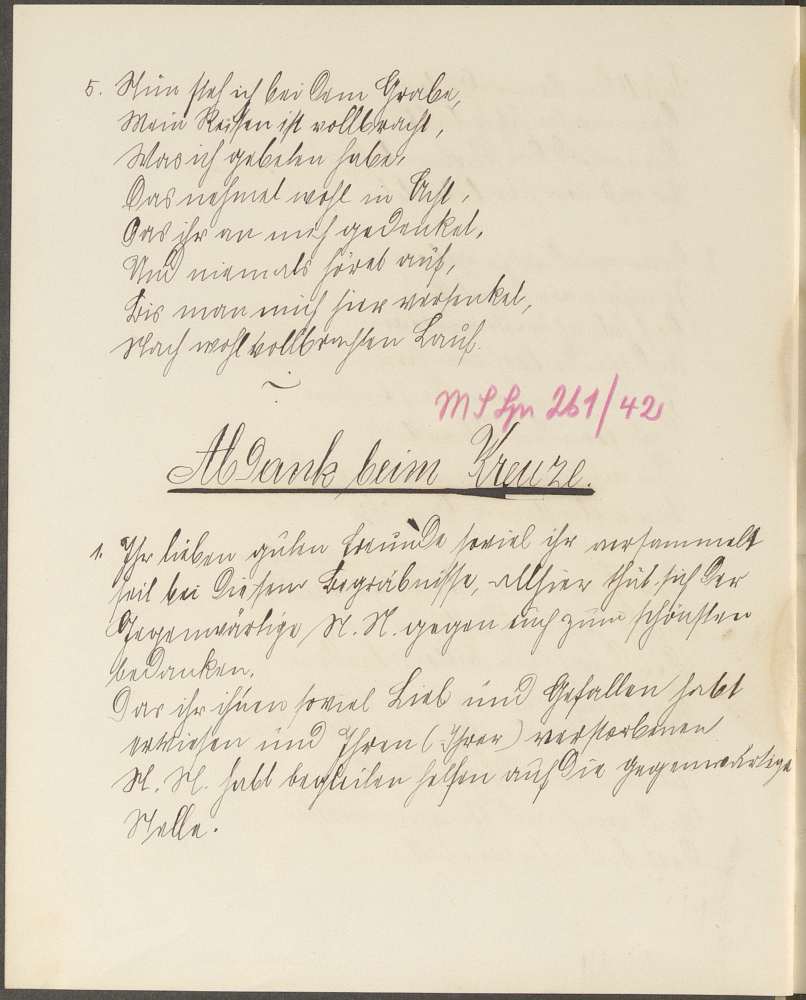 5. Nun steh ich bei dem Grabe,
Mein Reisen ist vollbracht,
Was ich gebeten habe,
Das nehmet wohl in Acht,
Das ihr an mich gedenket,
Und niemals höret auf,
Bis man mich hier versenket,
Nach wohl vollbrachten Lauf.
MS 261/42
Abdank beim Kreuze.
1. Ihr lieben guten Freunde soviel ihr versammelt
seit bei diesem Begräbnisse, allhier thut sich der
Gegenwärtige N. N. gegen euch zum schönsten
bedanken.
Das ihr ihnen soviel Lieb und Gefallen habt
erwiesen und Ihren (Ihrer) verstorbenen
N. N. habt begleiten helfen auf die gegenwärtige
Stelle.